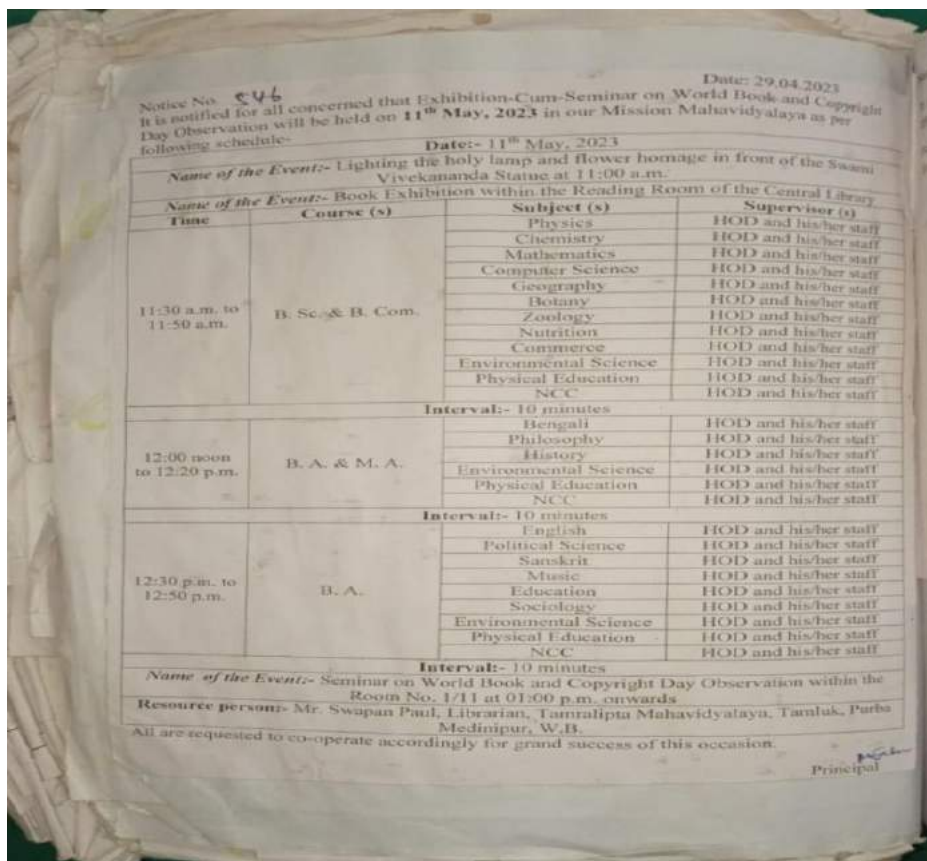 Date: 29.04.2023
Notice No. 546
It is notified for all concerned that Exhibition-Cum-Seminar on World Book and Copyright
Day Observation will be held on 11th May, 2023 in our Mission Mahavidyalaya as per
following schedule-
Date:- 11th May, 2023
Name of the Event:- Lighting the holy lamp and flower homage in front of the Swami
Vivekananda Statue at 11:00 a.m.
Name of the Event:- Book Exhibition within the Reading Room of the Central Library
Time Course (s) Subject (s) Supervisor (s)
Physics HOD and his/her staff
Chemistry HOD and his/her staff
Mathematics HOD and his/her staff
Computer Science HOD and his/her staff
Geography HOD and his/her staff
11:30 a.m. to B. Sc. & B. Com. Botany HOD and his/her staff
11:50 a.m. Zoology HOD and his/her staff
Nutrition HOD and his/her staff
Commerce HOD and his/her staff
Environmental Science HOD and his/her staff
Physical Education HOD and his/her staff
NCC HOD and his/her staff
Interval:- 10 minutes
Bengali HOD and his/her staff
Philosophy HOD and his/her staff
12:00 noon B. A. & M. A. History HOD and his/her staff
to 12:20 p.m. Environmental Science HOD and his/her staff
Physical Education HOD and his/her staff
NCC HOD and his/her staff
Interval:- 10 minutes
English HOD and his/her staff
Political Science HOD and his/her staff
Sanskrit HOD and his/her staff
12:30 p.m. to B. A. Music HOD and his/her staff
12:50 p.m. Education HOD and his/her staff
Sociology HOD and his/her staff
Environmental Science HOD and his/her staff
Physical Education HOD and his/her staff
NCC HOD and his/her staff
Interval:- 10 minutes
Name of the Event:- Seminar on World Book and Copyright Day Observation within the
Room No. 1/11 at 01:00 p.m. onwards
Resource person:- Mr. Swapan Paul, Librarian, Tamralipta Mahavidyalaya, Tamluk, Purba
Medinipur, W.B.
All are requested to co-operate accordingly for grand success of this occasion.
Principal